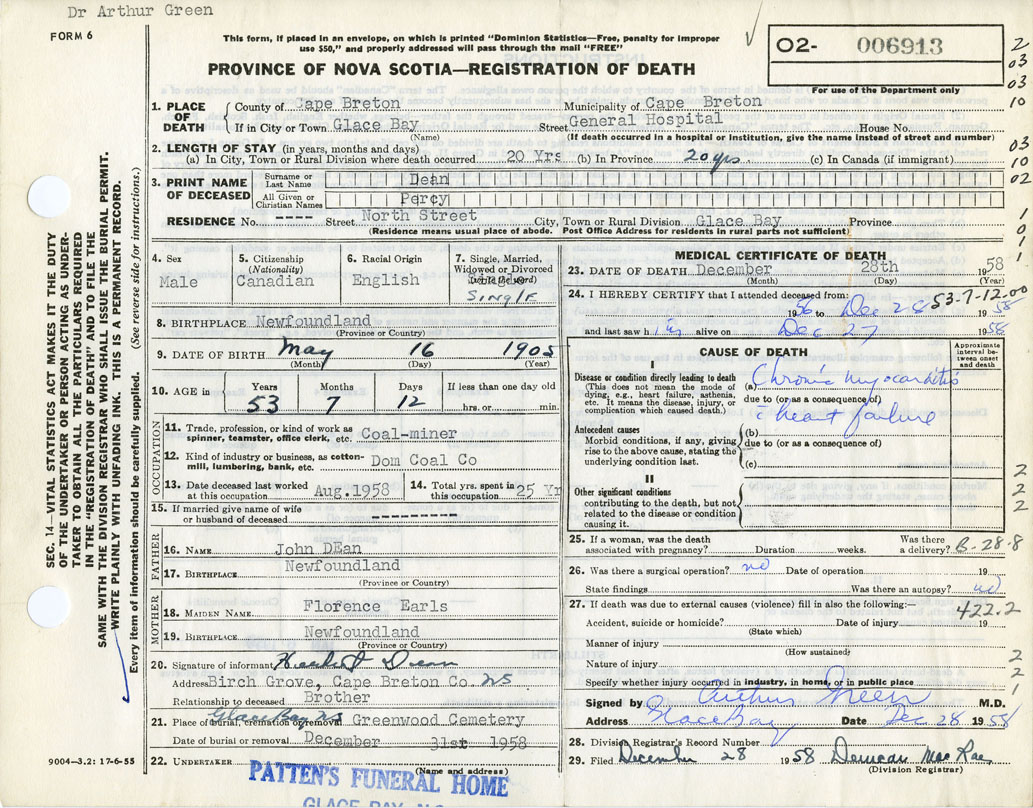 Dr Arthur Green
FORM 6
This form, if placed in an envelope, on which is printed "Dominion Statistics—Free, penalty for improper
use $50," and properly addressed will pass through the mail "FREE"
PROVINCE OF NOVA SCOTIA—REGISTRATION OF DEATH
O2- 006913
For use of the Department only
2
03
03
10
03
10
02
1
0
1
1
SEC. 14—VITAL STATISTICS ACT MAKES IT THE DUTY
OF THE UNDERTAKER OR PERSON ACTING AS UNDER-
TAKER TO OBTAIN ALL THE PARTICULARS REQUIRED
IN THE "REGISTRATION OF DEATH" AND TO FILE THE
SAME WITH THE DIVISION REGISTRAR WHO SHALL ISSUE THE BURIAL PERMIT.
WRITE PLAINLY WITH UNFADING INK. THIS IS A PERMANENT RECORD.
Every item of information should be carefully supplied. (See reverse side for instructions.)
1. PLACE OF DEATH
County of Cape Breton Municipality of Cape Breton
If in City or Town Glace Bay Street General Hospital House No.
(Name) (If death occurred in a hospital or institution, give the name instead of street and number)
2. LENGTH OF STAY (in years, months and days)
(a) In City, Town or Rural Division where death occurred 20 Yrs (b) In Province 20 yrs. (c) In Canada (if immigrant)
3. PRINT NAME OF DECEASED
Surname or Last Name Dean
All Given or Christian Names Percy
RESIDENCE No. ---- Street North Street City, Town or Rural Division Glace Bay Province
(Residence means usual place of abode. Post Office Address for residents in rural parts not sufficient)
4. Sex
Male
5. Citizenship
(Nationality)
Canadian
6. Racial Origin
English
7. Single, Married,
Widowed or Divorced
SINGLE
8. BIRTHPLACE Newfoundland
(Province or Country)
9. DATE OF BIRTH May 16 1905
(Month) (Day) (Year)
10. AGE in
Years Months Days If less than one day old
53 7 12 hrs. or min.
OCCUPATION
11. Trade, profession, or kind of work as
spinner, teamster, office clerk, etc. Coal-miner
12. Kind of industry or business, as cotton-
mill, lumbering, bank, etc. Dom Coal Co
13. Date deceased last worked
at this occupation Aug.1958
14. Total yrs. spent in
this occupation 25 Yr
15. If married give name of wife
or husband of deceased ---------
FATHER
16. NAME John DEan
17. BIRTHPLACE Newfoundland
(Province or Country)
MOTHER
18. MAIDEN NAME Florence Earls
19. BIRTHPLACE Newfoundland
(Province or Country)
20. Signature of informant Herbert Dean
Address Birch Grove, Cape Breton Co. NS
Relationship to deceased Brother
21. Place of burial, cremation or removal Glace Bay NS Greenwood Cemetery
Date of burial or removal December 31st 1958
22. UNDERTAKER
(Name and address)
PATTEN'S FUNERAL HOME
GLACE BAY, N.S.
9004—3.2: 17-6-55
MEDICAL CERTIFICATE OF DEATH
23. DATE OF DEATH December 28th 1958
(Month) (Day) (Year)
24. I HEREBY CERTIFY that I attended deceased from:
53-7-12.00
1956 to Dec 28 1958
and last saw him alive on Dec 27 1958
CAUSE OF DEATH
Approximate
interval be-
tween onset
and death
I
Disease or condition directly leading to death
(This does not mean the mode of
dying, e.g., heart failure, asthenia,
etc. It means the disease, injury, or
complication which caused death.)
(a) Chronic myocarditis
due to (or as a consequence of)
c̄ heart failure
Antecedent causes
Morbid conditions, if any, giving
rise to the above cause, stating the
underlying condition last.
(b)
due to (or as a consequence of)
(c)
II
Other significant conditions
contributing to the death, but not
related to the disease or condition
causing it.
2
2
2
25. If a woman, was the death
associated with pregnancy? Duration weeks.
Was there
a delivery? B-28-8
26. Was there a surgical operation? no Date of operation 19
State findings Was there an autopsy? no
27. If death was due to external causes (violence) fill in also the following:—
422.2
Accident, suicide or homicide? Date of injury 19
(State which)
Manner of injury
(How sustained)
Nature of injury
Specify whether injury occurred in industry, in home, or in public place
2
2
1
Signed by Arthur Green M.D.
Address Glace Bay Date Dec 28 1958
28. Division Registrar's Record Number
29. Filed December 28 1958 Duncan MacRae
(Division Registrar)